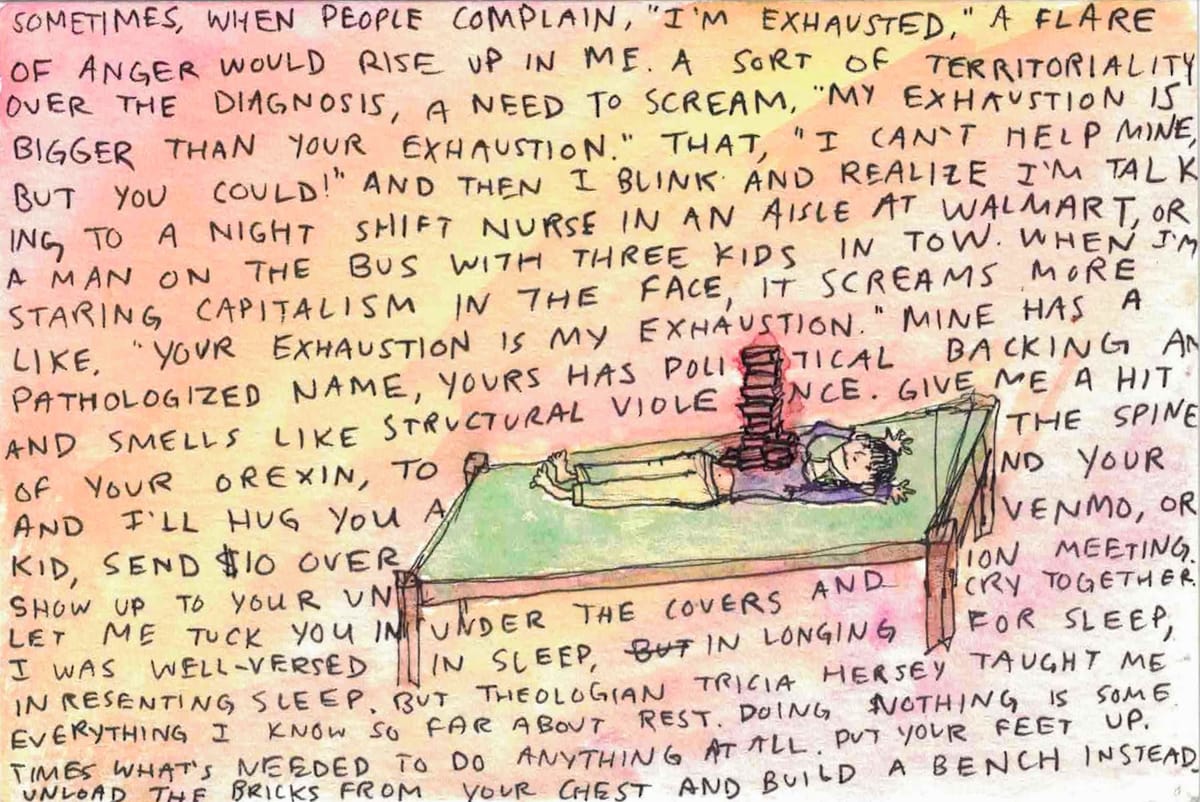 SOMETIMES, WHEN PEOPLE COMPLAIN, "I'M EXHAUSTED," A FLARE
OF ANGER WOULD RISE UP IN ME. A SORT OF TERRITORIALITY
OVER THE DIAGNOSIS, A NEED TO SCREAM, "MY EXHAUSTION IS
BIGGER THAN YOUR EXHAUSTION." THAT, "I CAN'T HELP MINE,
BUT YOU COULD!" AND THEN I BLINK AND REALIZE I'M TALK
ING TO A NIGHT SHIFT NURSE IN AN AISLE AT WALMART, OR
A MAN ON THE BUS WITH THREE KIDS IN TOW. WHEN I'M
STARING CAPITALISM IN THE FACE, IT SCREAMS MORE
LIKE, "YOUR EXHAUSTION IS MY EXHAUSTION." MINE HAS A
PATHOLOGIZED NAME, YOURS HAS POLITICAL BACKING AN
AND SMELLS LIKE STRUCTURAL VIOLENCE. GIVE ME A HIT
OF YOUR OREXIN, TO THE SPINE
AND I'LL HUG YOU AND YOUR
KID, SEND $10 OVER VENMO, OR
SHOW UP TO YOUR UNION MEETING.
LET ME TUCK YOU IN UNDER THE COVERS AND CRY TOGETHER
I WAS WELL-VERSED IN SLEEP, BUT IN LONGING FOR SLEEP,
IN RESENTING SLEEP. BUT THEOLOGIAN TRICIA HERSEY TAUGHT ME
EVERYTHING I KNOW SO FAR ABOUT REST. DOING NOTHING IS SOME
TIMES WHAT'S NEEDED TO DO ANYTHING AT ALL. PUT YOUR FEET UP.
UNLOAD THE BRICKS FROM YOUR CHEST AND BUILD A BENCH INSTEAD.